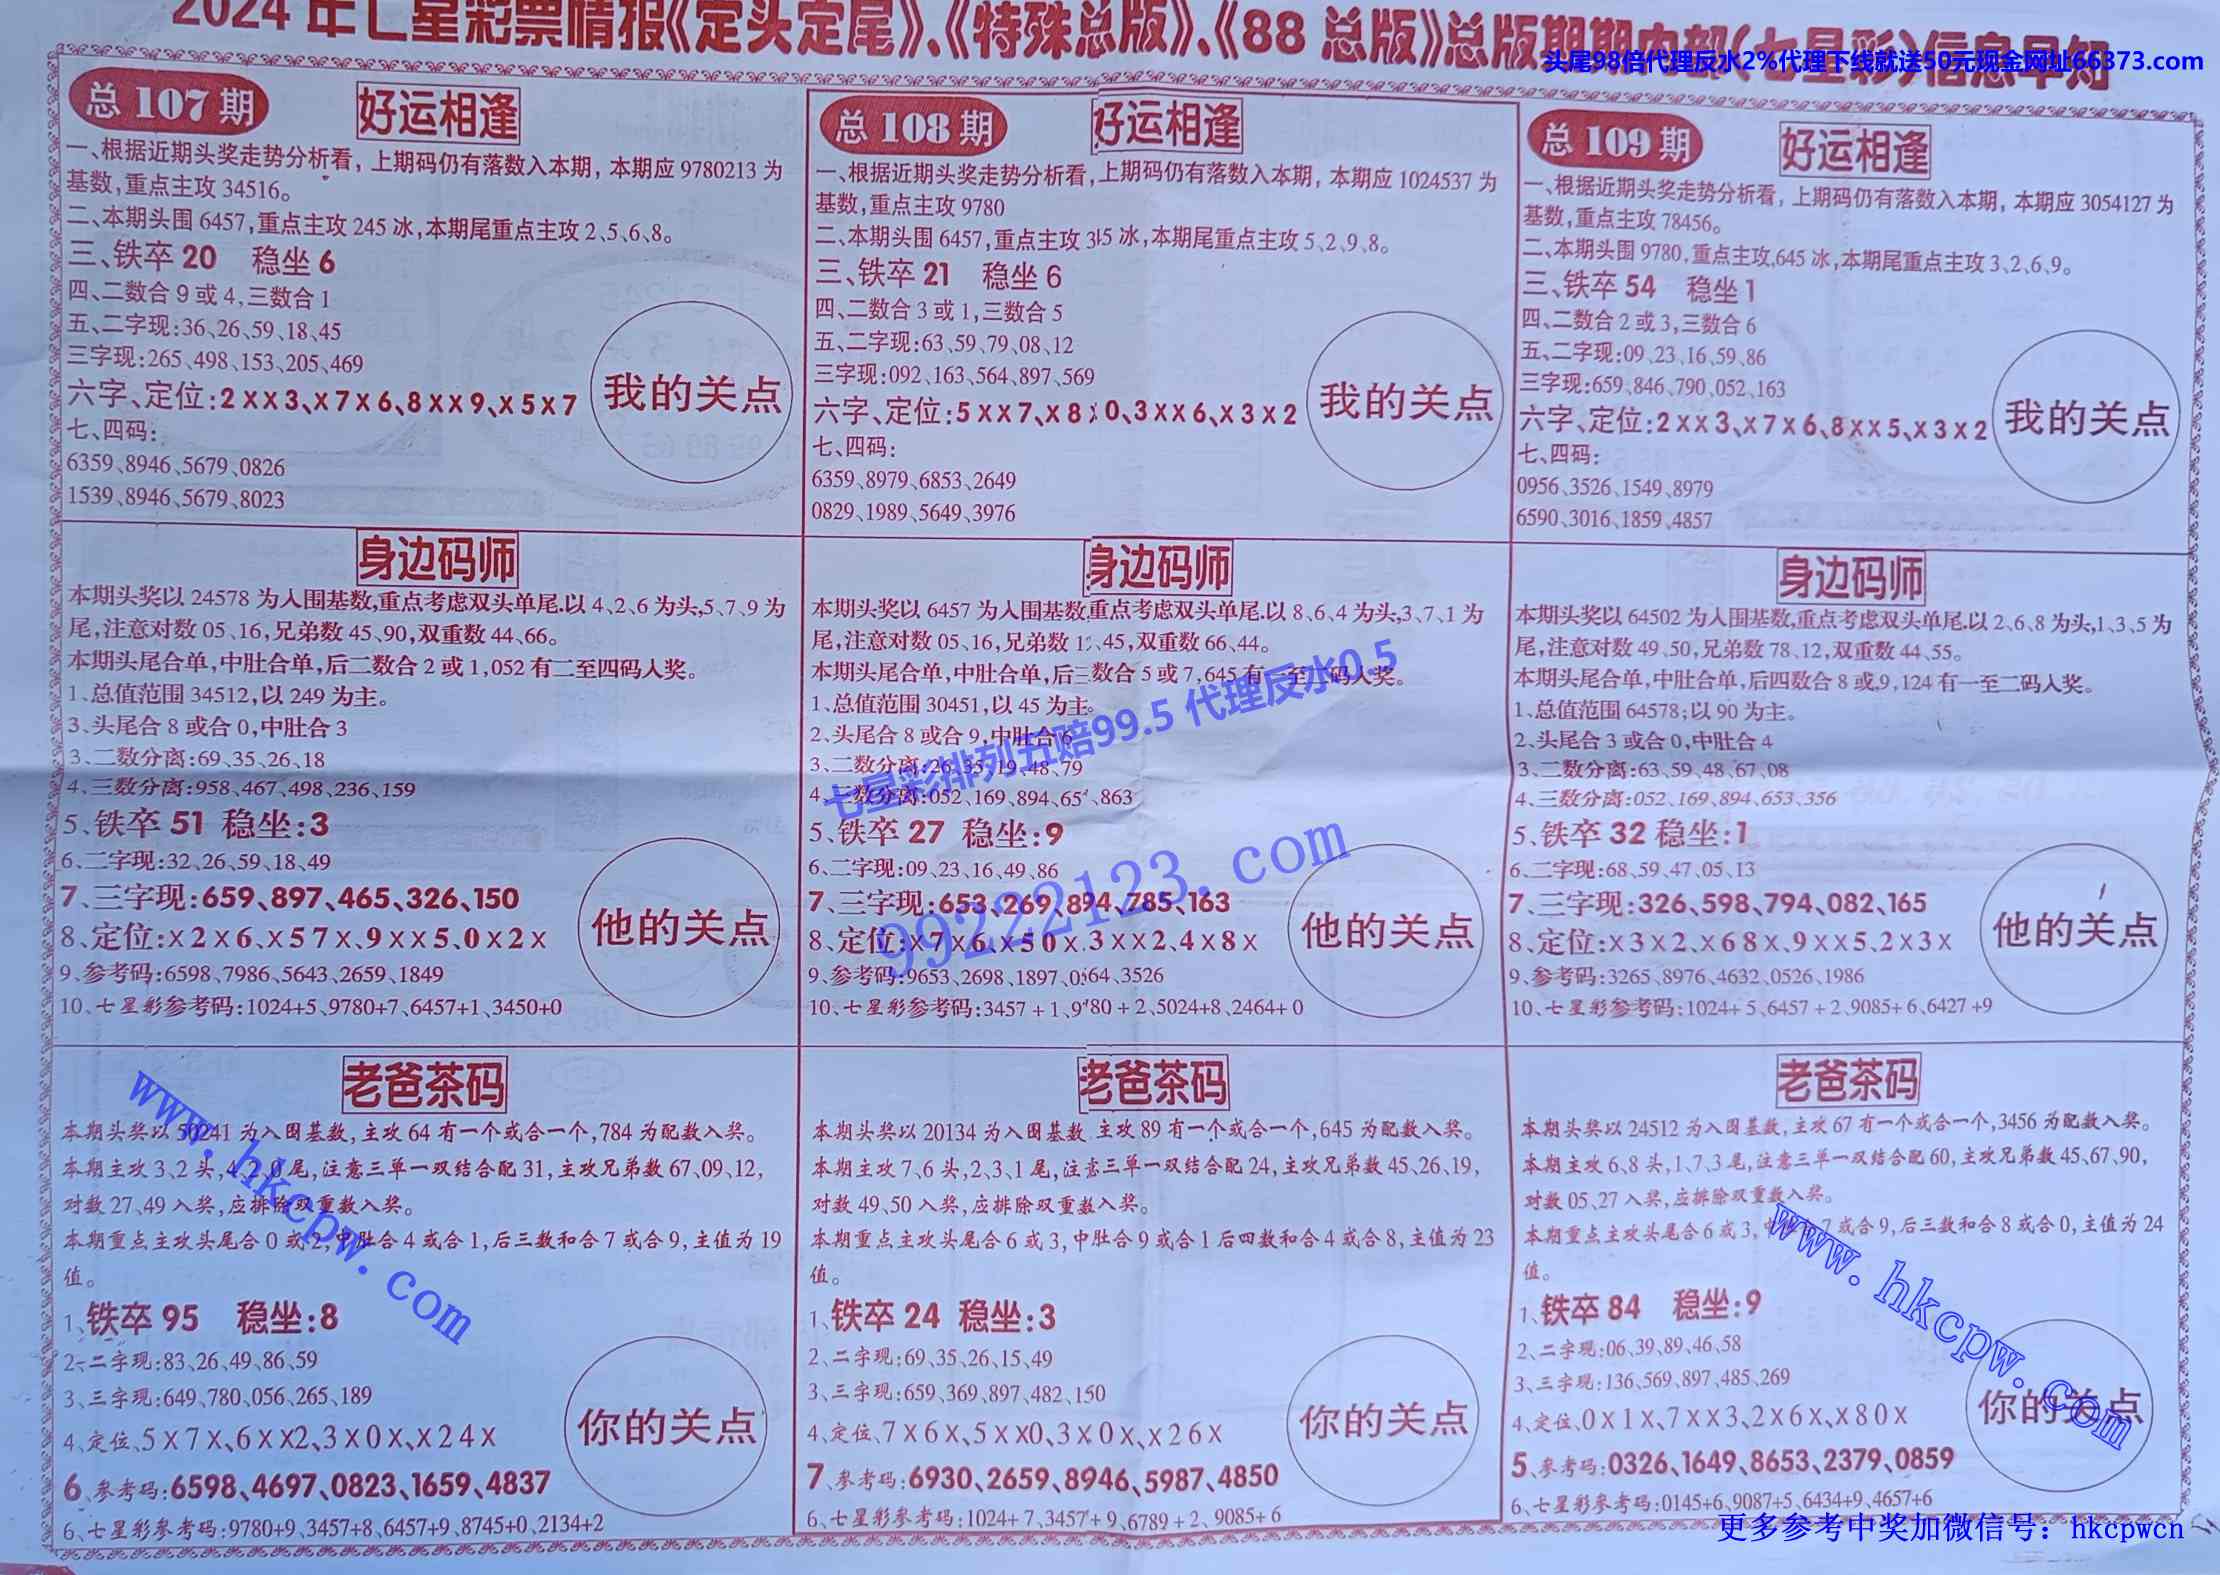 2024年七星彩票情报《定头定尾》、《特殊总版》、《88总版》总版期期内部(七星彩)信息早知
头尾98倍代理反水2%代理下线就送50元现金网址66373.com
总107期
好运相逢
一、根据近期头奖走势分析看，上期码仍有落数入本期，本期应9780213为
基数，重点主攻34516。
二、本期头围6457，重点主攻245冰，本期尾重点主攻2、5、6、8。
三、铁卒20 稳坐6
四、二数合9或4，三数合1
五、二字现：36、26、59、18、45
三字现：265、498、153、205、469
六字、定位：2XX3、X7X6、8XX9、X5X7
七、四码：
6359、8946、5679、0826
1539、8946、5679、8023
我的关点
身边码师
本期头奖以24578为入围基数，重点考虑双头单尾.以4、2、6为头，5、7、9为
尾，注意对数05、16，兄弟数45、90，双重数44、66。
本期头尾合单，中肚合单，后二数合2或1，052有二至四码入奖。
1、总值范围34512，以249为主。
3、头尾合8或合0，中肚合3
3、二数分离：69、35、26、18
4、三数分离：958、467、498、236、159
5、铁卒51 稳坐：3
6、二字现：32、26、59、18、49
7、三字现：659、897、465、326、150
8、定位：X2X6、X57X、9XX5、0X2X
9、参考码：6598、7986、5643、2659、1849
10、七星彩参考码：1024+5、9780+7、6457+1、3450+0
他的关点
老爸茶码
本期头奖以50241为入围基数，主攻64有一个或合一个，784为配数入奖。
本期主攻3、2头，4、2、0尾，注意三单一双结合配31，主攻兄弟数67、09、12，
对数27、49入奖，应排除双重数入奖。
本期重点主攻头尾合0或2，中肚合4或合1，后三数和合7或合9，主值为19
值。
1、铁卒95 稳坐：8
2、二字现：83、26、49、86、59
3、三字现：649、780、056、265、189
4、定位、5X7X、6XX2、3X0X、X24X
6、参考码：6598、4697、0823、1659、4837
6、七星彩参考码：9780+9、3457+8、6457+9、8745+0、2134+2
你的关点
总108期
好运相逢
一、根据近期头奖走势分析看，上期码仍有落数入本期，本期应1024537为
基数，重点主攻9780
二、本期头围6457，重点主攻345冰，本期尾重点主攻5、2、9、8。
三、铁卒21 稳坐6
四、二数合3或1，三数合5
五、二字现：63、59、79、08、12
三字现：092、163、564、897、569
六字、定位：5XX7、X8X0、3XX6、X3X2
七、四码：
6359、8979、6853、2649
0829、1989、5649、3976
我的关点
身边码师
本期头奖以6457为入围基数，重点考虑双头单尾.以8、6、4为头，3、7、1为
尾，注意对数05、16，兄弟数、45，双重数66、44。
本期头尾合单，中肚合单，后三数合5或7，645有一至二码入奖。
1、总值范围30451，以45为主。
2、头尾合8或合9，中肚合6
3、二数分离：26、35、19、48、79
4、三数分离：052、169、894、65、863
5、铁卒27 稳坐：9
6、二字现：09、23、16、49、86
7、三字现：653、269、894、785、163
8、定位：X7X6、X50X、3XX2、4X8X
9、参考码：9653、2698、1897、0564、3526
10、七星彩参考码：3457+1、9780+2、5024+8、2464+0
他的关点
老爸茶码
本期头奖以20134为入围基数，主攻89有一个或合一个，645为配数入奖。
本期主攻7、6头，2、3、1尾，注意三单一双结合配24，主攻兄弟数45、26、19，
对数49、50入奖，应排除双重数入奖。
本期重点主攻头尾合6或3，中肚合9或合1后四数和合4或合8，主值为23
值。
1、铁卒24 稳坐：3
2、二字现：69、35、26、15、49
3、三字现：659、369、897、482、150
4、定位、7X6X、5XX0、3X0X、X26X
7、参考码：6930、2659、8946、5987、4850
6、七星彩参考码：1024+7、3457+9、6789+2、9085+6
你的关点
总109期
好运相逢
一、根据近期头奖走势分析看，上期码仍有落数入本期，本期应3054127为
基数，重点主攻78456。
二、本期头围9780，重点主攻，645冰，本期尾重点主攻3、2、6、9。
三、铁卒54 稳坐1
四、二数合2或3，三数合6
五、二字现：09、23、16、59、86
三字现：659、846、790、052、163
六字、定位：2XX3、X7X6、8XX5、X3X2
七、四码：
0956、3526、1549、8979
6590、3016、1859、4857
我的关点
身边码师
本期头奖以64502为入围基数，重点考虑双头单尾.以2、6、8为头，1、3、5为
尾，注意对数49、50，兄弟数78、12，双重数44、55。
本期头尾合单，中肚合单，后四数合8或，9，124有一至二码入奖。
1、总值范围64578；以90为主。
2、头尾合3或合0，中肚合4
3、二数分离：63、59、48、67、08
4、三数分离：052、169、894、653、356
5、铁卒32 稳坐：1
6、二字现：68、59、47、05、13
7、三字现：326、598、794、082、165
8、定位：X3X2、X68X、9XX5、2X3X
9、参考码：3265、8976、4632、0526、1986
10、七星彩参考码：1024+5、6457+2、9085+6、6427+9
他的关点
老爸茶码
本期头奖以24512为入围基数，主攻67有一个或合一个，3456为配数入奖。
本期主攻6、8头，1、7、3尾，注意三单一双结合配60，主攻兄弟数45、67、90，
对数05、27入奖，应排除双重数入奖。
本期重点主攻头尾合6或3，中7或合9，后三数和合8或合0，主值为24
值。
1、铁卒84 稳坐：9
2、二字现：06、39、89、46、58
3、三字现：136、569、897、485、269
4、定位、0X1X、7XX3、2X6X、X80X
5、参考码：0326、1649、8653、2379、0859
6、七星彩参考码：0145+6、9087+5、6434+9、4657+6
你的关点
七星彩排列五赔99.5 代理反水0.5
99222123.com
www.hkcpw.com
www.hkcpw.com
更多参考中奖加微信号：hkcpwcn